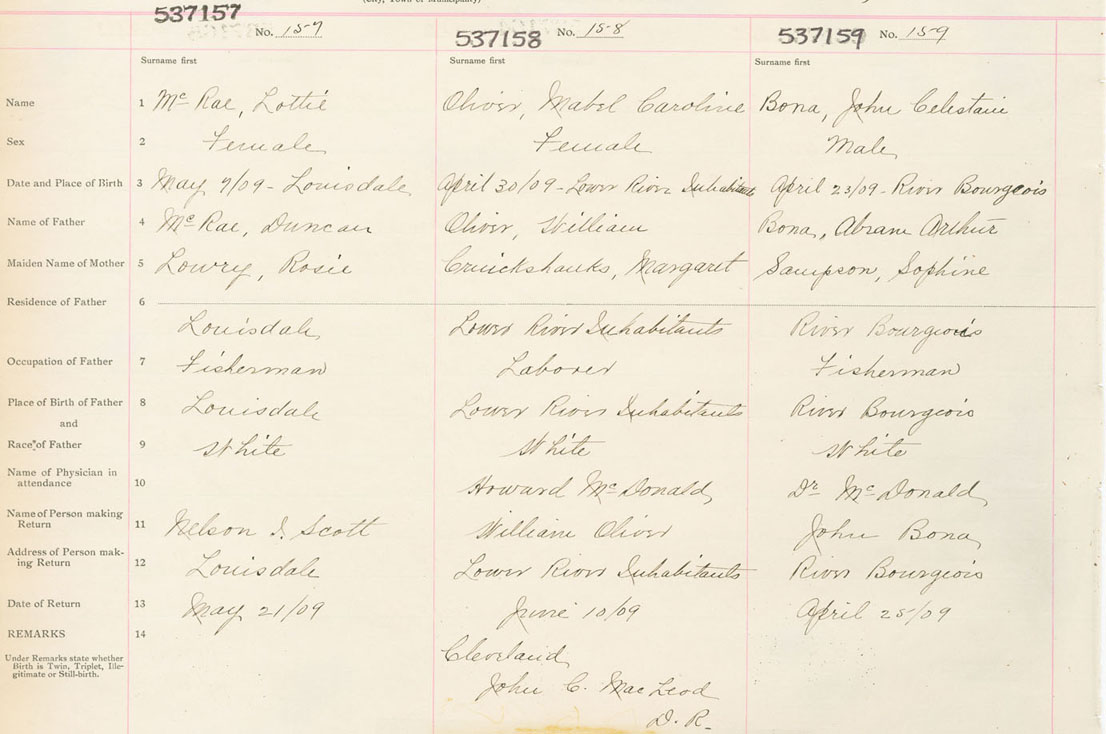 (City, Town or Municipality)
537157 No. 157 537158 No. 158 537159 No. 159
Surname first Surname first Surname first
Name 1 Mc Rae, Lottie Oliver, Mabel Caroline Bona, John Celestain
Sex 2 Female Female Male
Date and Place of Birth 3 May 7/09 - Louisdale April 30/09 - Lower River Inhabitants April 23/09 - River Bourgeois
Name of Father 4 Mc Rae, Duncan Oliver, William Bona, Abram Arthur
Maiden Name of Mother 5 Lowry, Rosie Cruickshanks, Margaret Sampson, Sophine
Residence of Father 6
Louisdale Lower River Inhabitants River Bourgeois
Occupation of Father 7 Fisherman Laborer Fisherman
Place of Birth of Father 8 Louisdale Lower River Inhabitants River Bourgeois
and
Race of Father 9 White White White
Name of Physician in
attendance 10 Howard Mc Donald Dr Mc Donald
Name of Person making
Return 11 Nelson I. Scott William Oliver John Bona
Address of Person mak-
ing Return 12 Louisdale Lower River Inhabitants River Bourgeois
Date of Return 13 May 21/09 June 10/09 April 25/09
REMARKS 14
Under Remarks state whether
Birth is Twin, Triplet, Ille-
gitimate or Still-birth.
Cleveland
John C. MacLeod
D. R.